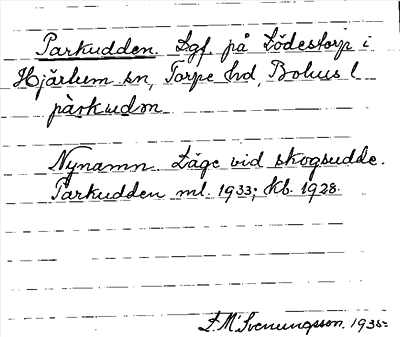 Parkudden. Lgf. på Lödestorp i
Hjärtum sn, Torpe hd, Bohus l
pàrkudøn
Nynamn. Läge vid skogsudde.
Parkudden ml. 1933; kb. 1928.
S. M. Svenungsson. 1935